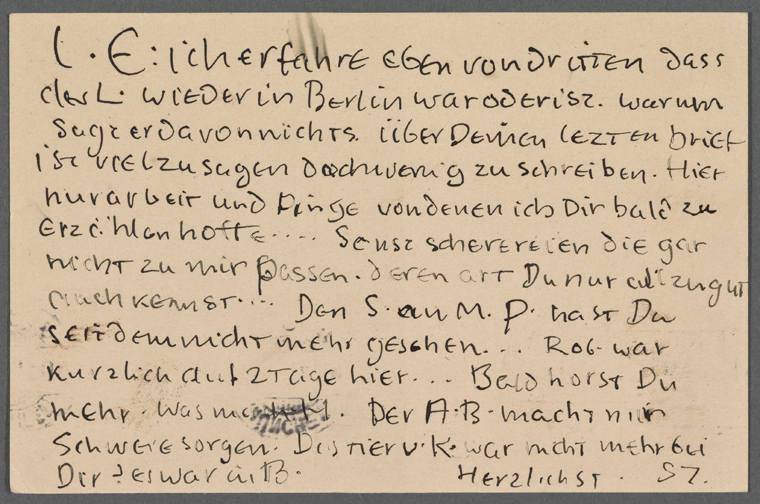 L. E: ich erfahre eben von dritten dass
der L. wieder in Berlin war oder ist. warum
sagt er davon nichts. über Deinen lezten brief
ist viel zu sagen doch wenig zu schreiben. Hier
nur arbeit und Dinge von denen ich Dir bald zu
erzählen hoffe.... Sonst scherereien die gar
nicht zu mir passen. deren art Du nur allzugut
auch kennst.... Den S. aus M. P. hast Du
seitdem nicht mehr gesehen... Rob. war
kurzlich auf 2 Tage hier... Bald horst Du
mehr. was macht H. Der A. B. macht mir
Schwere sorgen. Dis tier v. K. war nicht mehr bei
Dir? es war in B.
Herzlichst. ST.